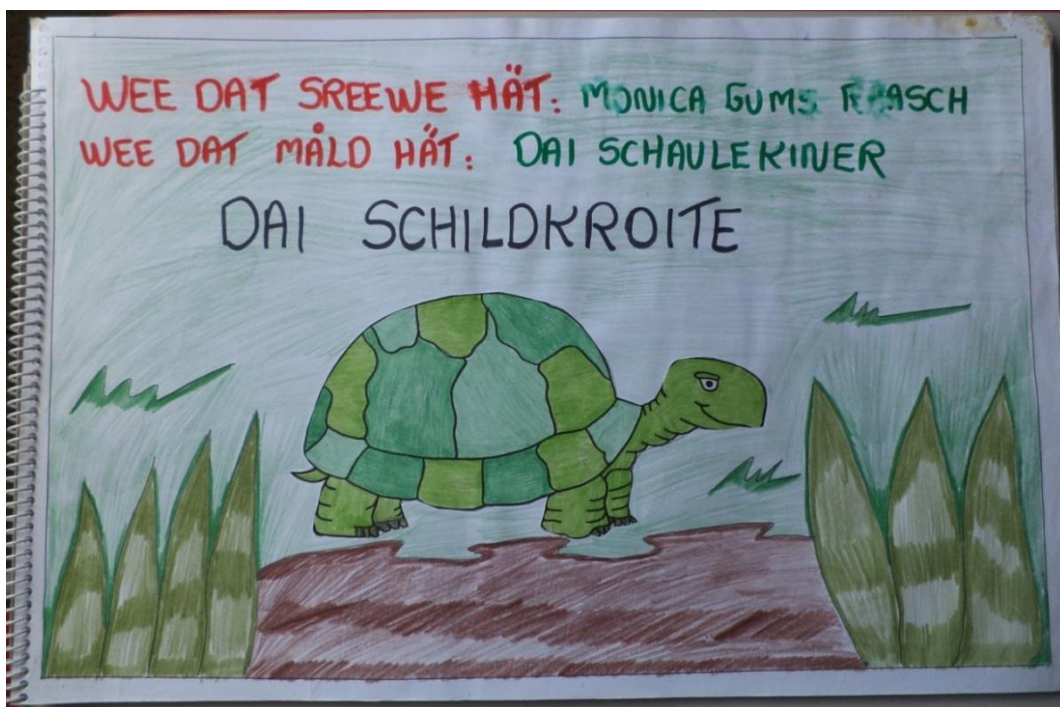 WEE DAT SREEWE HÄT: MONICA GUMS
WEE DAT MÅLD HÄT: DAI SCHAULEKINER
DAI SCHILDKROITE